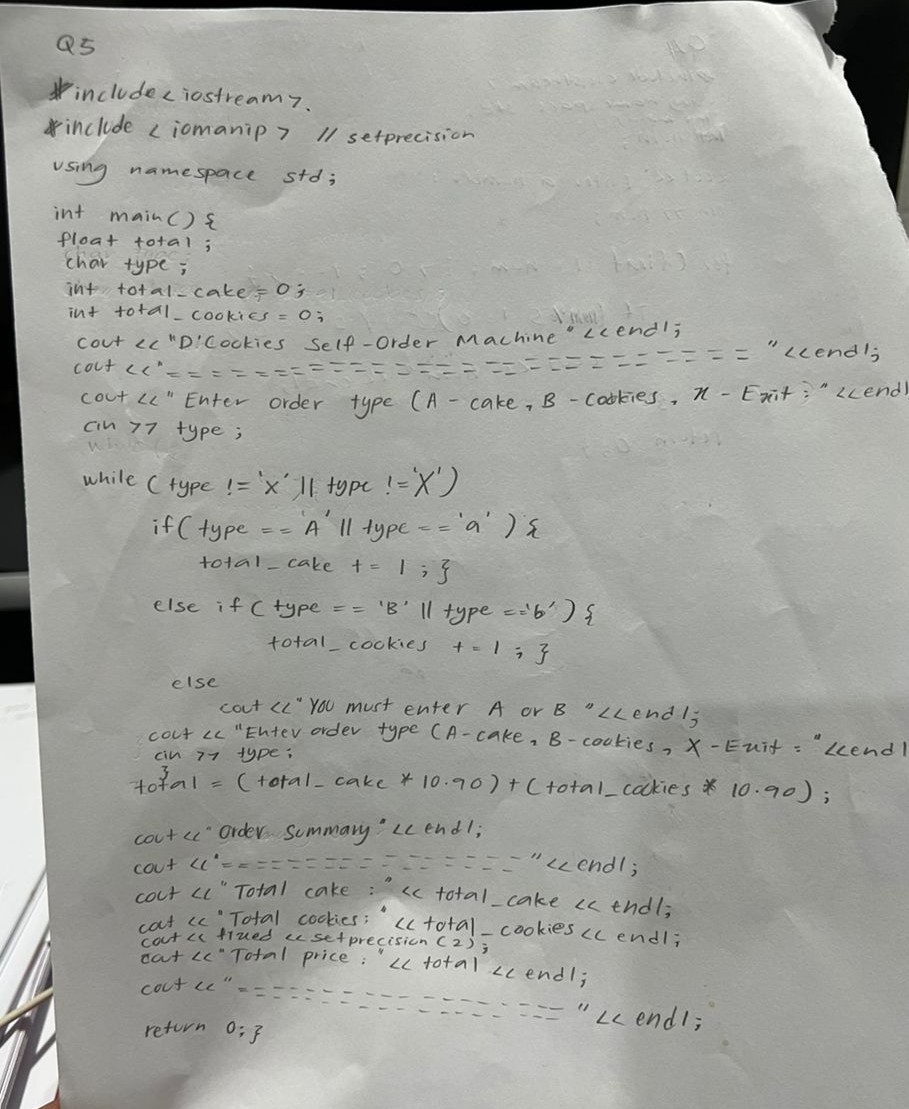 Q5
#include<iostream>.
#include <iomanip> // setprecision
using namespace std;
int main(){
float total;
char type;
int total_cake = 0;
int total_cookies = 0;
cout << "D'Cookies Self-Order Machine" << endl;
cout << "==============================" << endl;
cout << "Enter order type (A - cake, B - Cookies, X - Exit : " << endl
cin >> type;
while (type != 'x' || type != 'X')
if( type == 'A' || type == 'a' ) {
total_cake += 1 ; }
else if ( type == 'B' || type == 'b' ) {
total_cookies += 1 ; }
else
cout << "You must enter A or B " << endl;
cout << "Enter order type (A-cake, B-cookies, X-Exit : " << endl
cin >> type;
}
total = (total_cake * 10.90) + (total_cookies * 10.90) ;
cout << "Order Summary" << endl;
cout << "==================" << endl;
cout << "Total cake : " << total_cake << endl;
cout << "Total cookies: " << total_cookies << endl;
cout << fixed << setprecision(2);
cout << "Total price : " << total << endl;
cout << "====================" << endl;
return 0; }